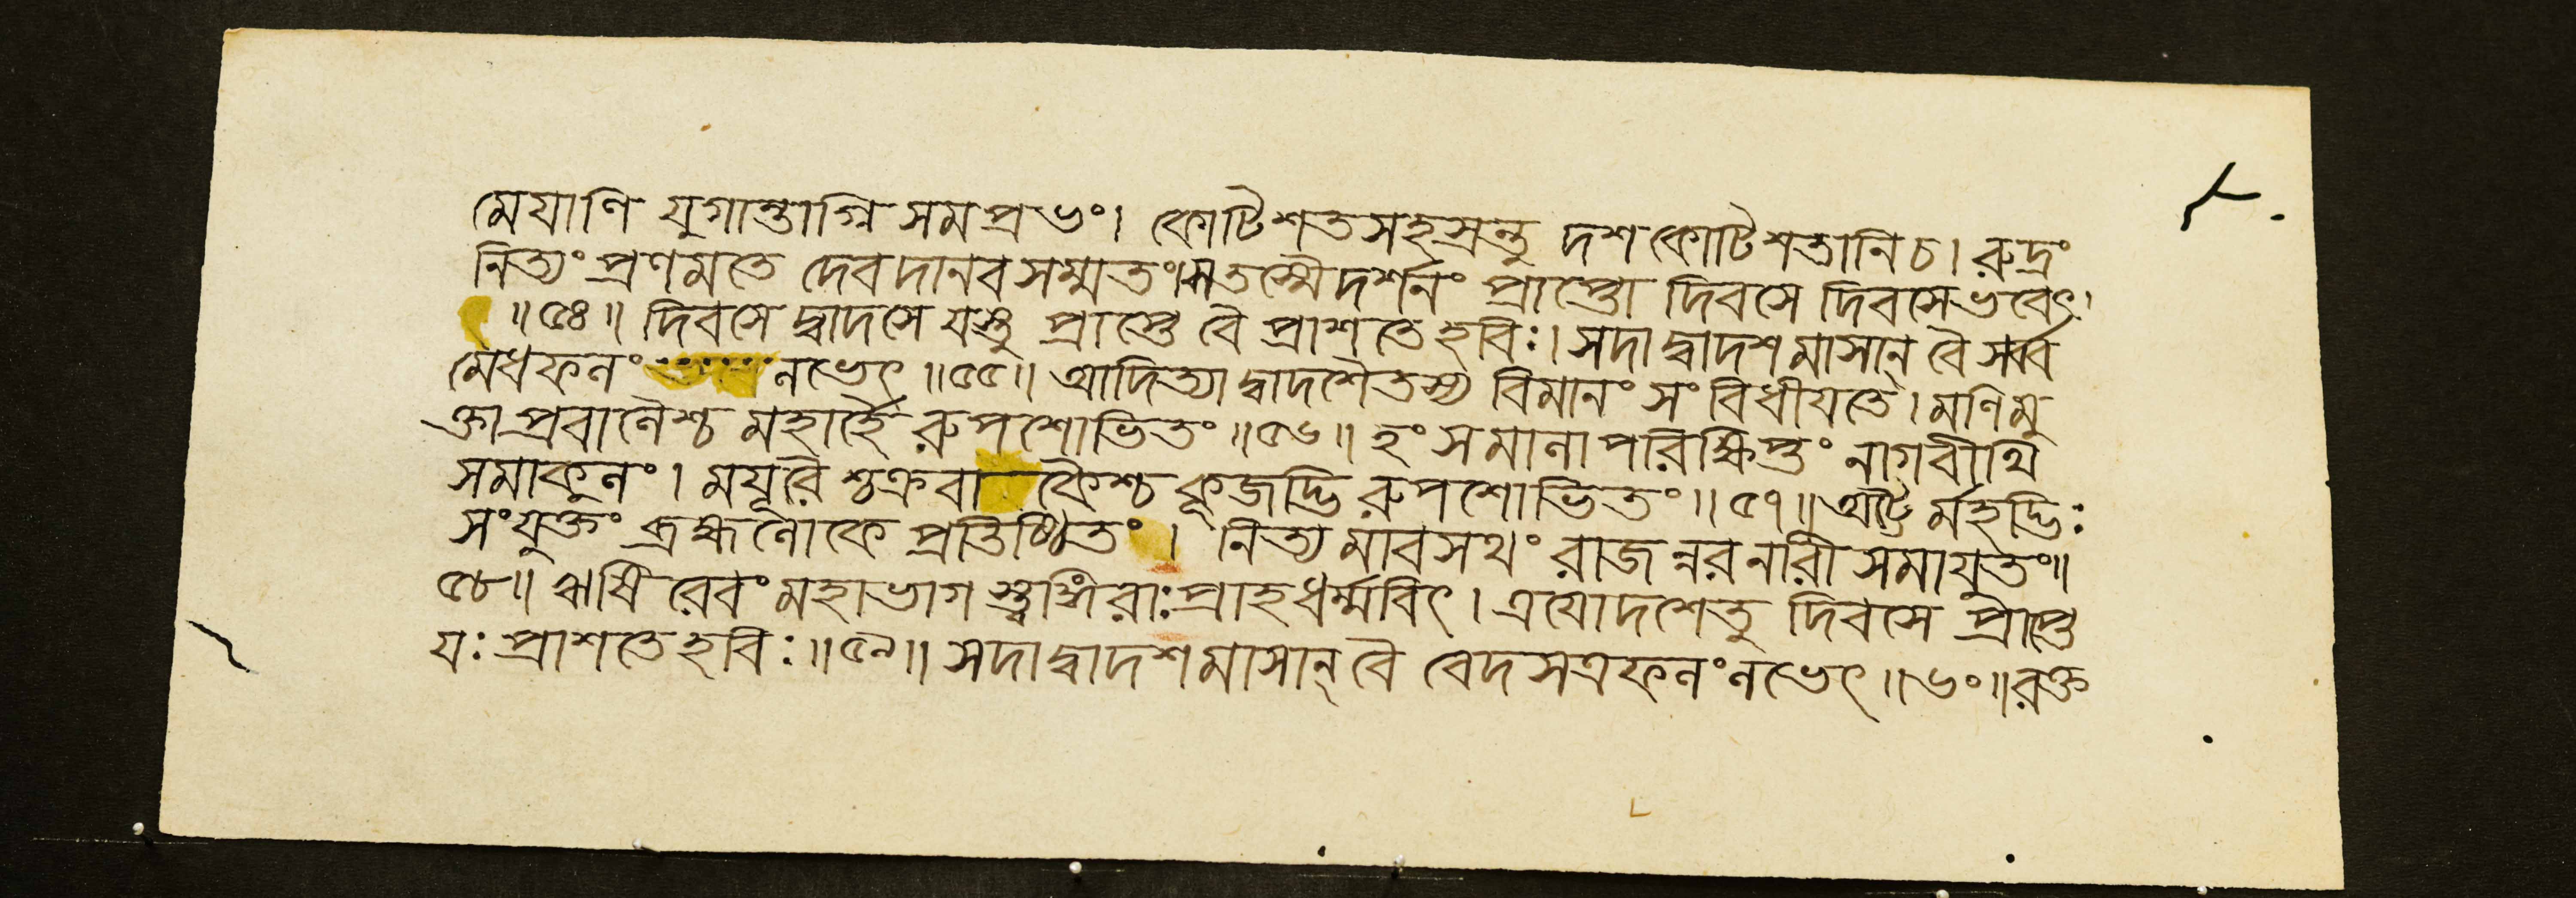 মেযাণি যুগান্তাগ্নি সমপ্রভং। কোটিশতসহস্রন্তু দশকোটিশতানিচ। রুদ্রং
নিত্যং প্রণমতে দেবদানবসম্মতং। সতস্মৈদর্শনং প্রাপ্তো দিবসে দিবসেভবেৎ।
॥৫৪॥ দিবসে দ্বাদসে যস্তু প্রাপ্তে বৈ প্রাশতেহবিঃ। সদাদ্বাদশমাসান্ বৈ সর্ব্ব
মেধফলং লভেৎ ॥৫৫॥ আদিত্যা দ্বাদশৈতস্য বিমানং সংবিধীযতে। মণিমু
ক্তাপ্রবালৈশ্চ মহার্হৈ রুপশোভিতং ॥৫৬॥ হংসমালাপরিক্ষিপ্তং নাগবীথি
সমাকুলং। ময়ূরৈ শ্চক্রবাকৈশ্চ কূজদ্ভিরুপশোভিতং ॥৫৭॥ অট্টৈর্মহদ্ভিঃ
সংযুক্তং ব্রহ্মলোকে প্রতিষ্ঠিতং। নিত্যমাবসথং রাজন্নরনারীসমাযুতং॥
৫৮॥ ঋষিরেবং মহাভাগ স্ত্বঙ্গিরাঃ প্রাহধর্ম্মবিৎ। ত্রযোদশেতু দিবসে প্রাপ্তে
যঃ প্রাশতেহবিঃ॥৫৯॥ সদাদ্বাদশমাসান্ বৈ বেদসত্রফলংলভেৎ॥৬০॥ রক্ত